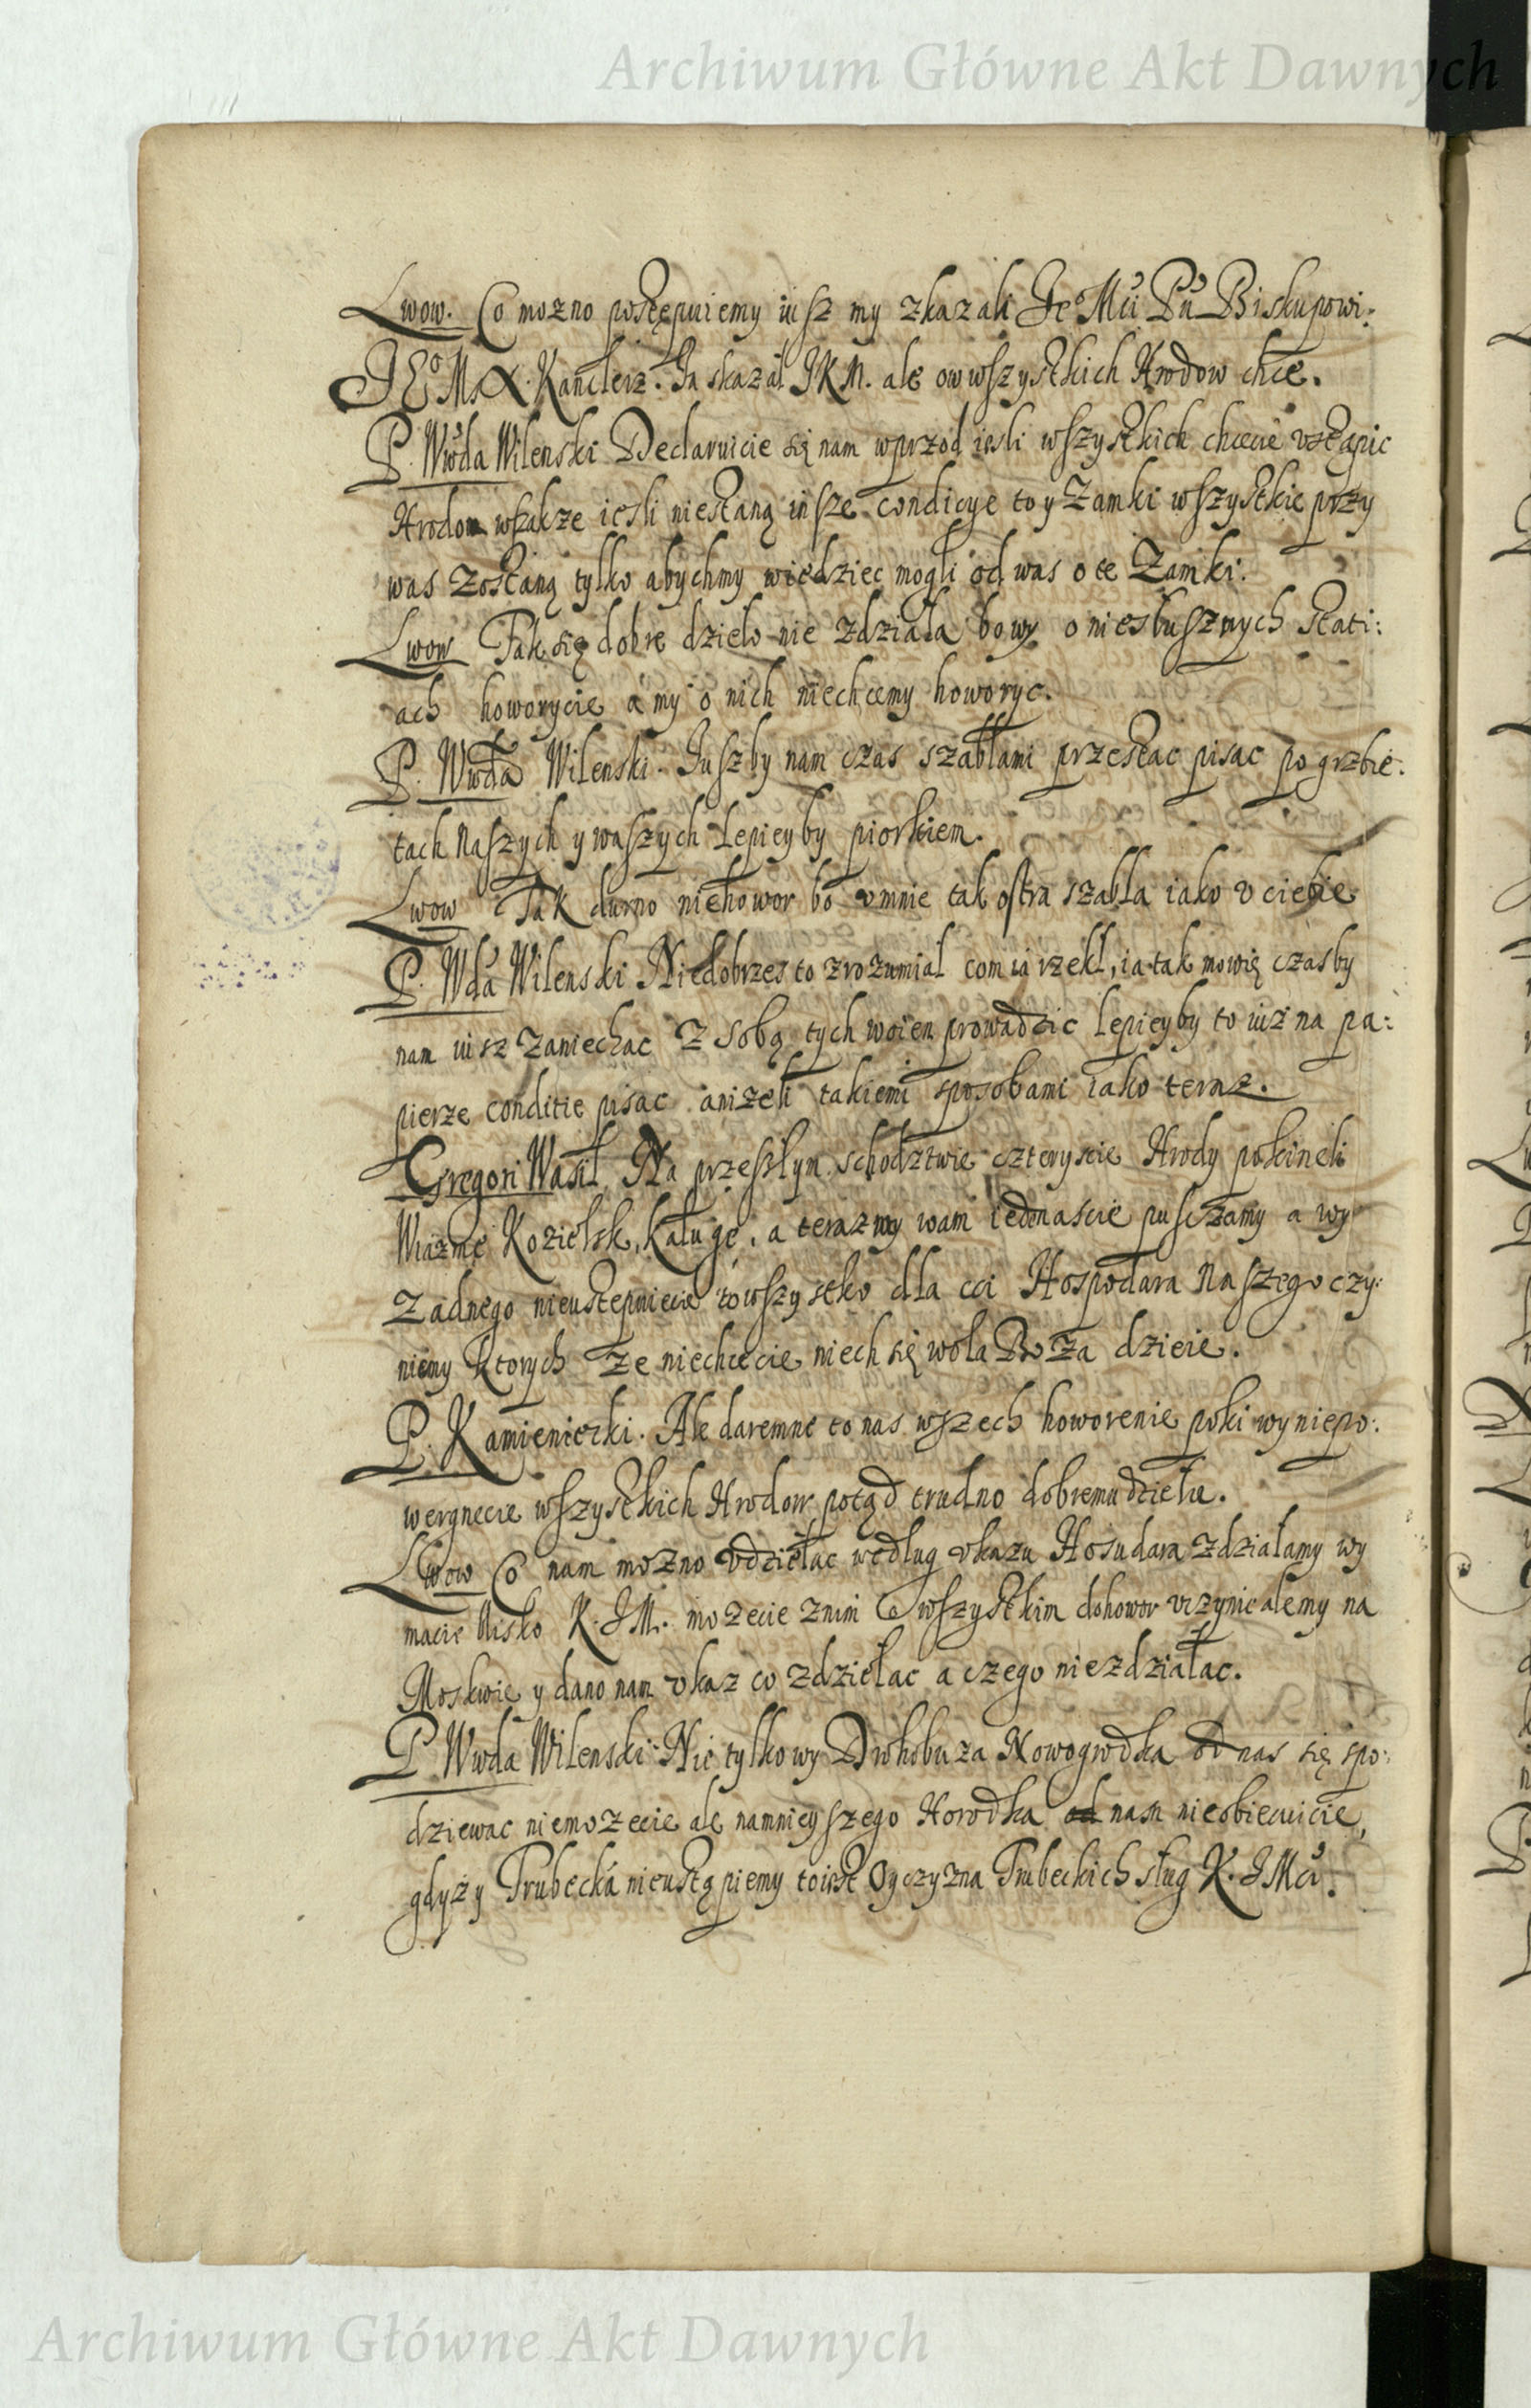 Archiwum Główne Akt Dawnych
Lwow. Co mozno postępuiemy iusz my zkazali Je° Mći Pu Biskupowi:
JE° Mx. Kanclerz. Ja skazał JKM. ale o wwszystkich Hrodow chce.
P. Wwda Wilenski Declaruicie się nam wprzod iesli wszystkich chcecie vstąpic
Hrodow wszakze iesli niestaną insze condicye to y Zamki wszystkie przy
was zostaną tylko abychmy wiedziec mogli od was o te Zamki.
Lwow Tak się dobre dzieło nie zdziała bo wy o niesłusznych stati:
ach howorycie a my o nich niechcemy howoryc.
P. Wwda Wilenski. Juszby nam czas szablami przestac pisac po grzbie:
tach Naszych y waszych Lepieyby piorkiem.
Lwow Tak durno niehowor bo v mnie tak ostra szabla iako v ciebie
P. Wda Wilenski Niedobrzes to zrozumiał com ia rzekł, ia tak mowię czasby
nam iusz zaniechac z sobą tych woien prowadzic Lepieyby to iuż na pa:
pierze conditie pisac anizeli takiemi sposobami iako teraz.
Gregori Wasil. Na przeszłym schodztwie czteryscie Hrody pokineli
Wiazmę Kozielsk, Kaługę, a teraz my wam iedenascie pusczamy a wy
Zadnego nieustępuiecie to wszystko dla cci Hospodara Naszego czy:
niemy ktorych ze niechcecie niech się wola Boża dzieie.
P. Kamieniecki. Ale daremne to nas wszech howorenie poki wy niepo:
wergnecie wszystkich Hrodow potąd trudno dobremu dziełu.
Lwow Co nam mozno vdziełac według vkazu Hosudara zdziałamy wy
macie blisko K. JM. mozecie znim o wszystkim dohowor vczynic ale my na
Moskwie y dano nam vkaz co zdziełac a czego niezdziałac.
P Wwda Wilenski Nie tylko wy Drohobuza Nowogrodka od nas się spo:
dziewac niemozecie ale namnieyszego Horodka nam nieobiecuicie,
gdyż y Trubecká nieustąpiemy to iest Oyczyzna Trubeckich sług K. JMci.
Archiwum Główne Akt Dawnych